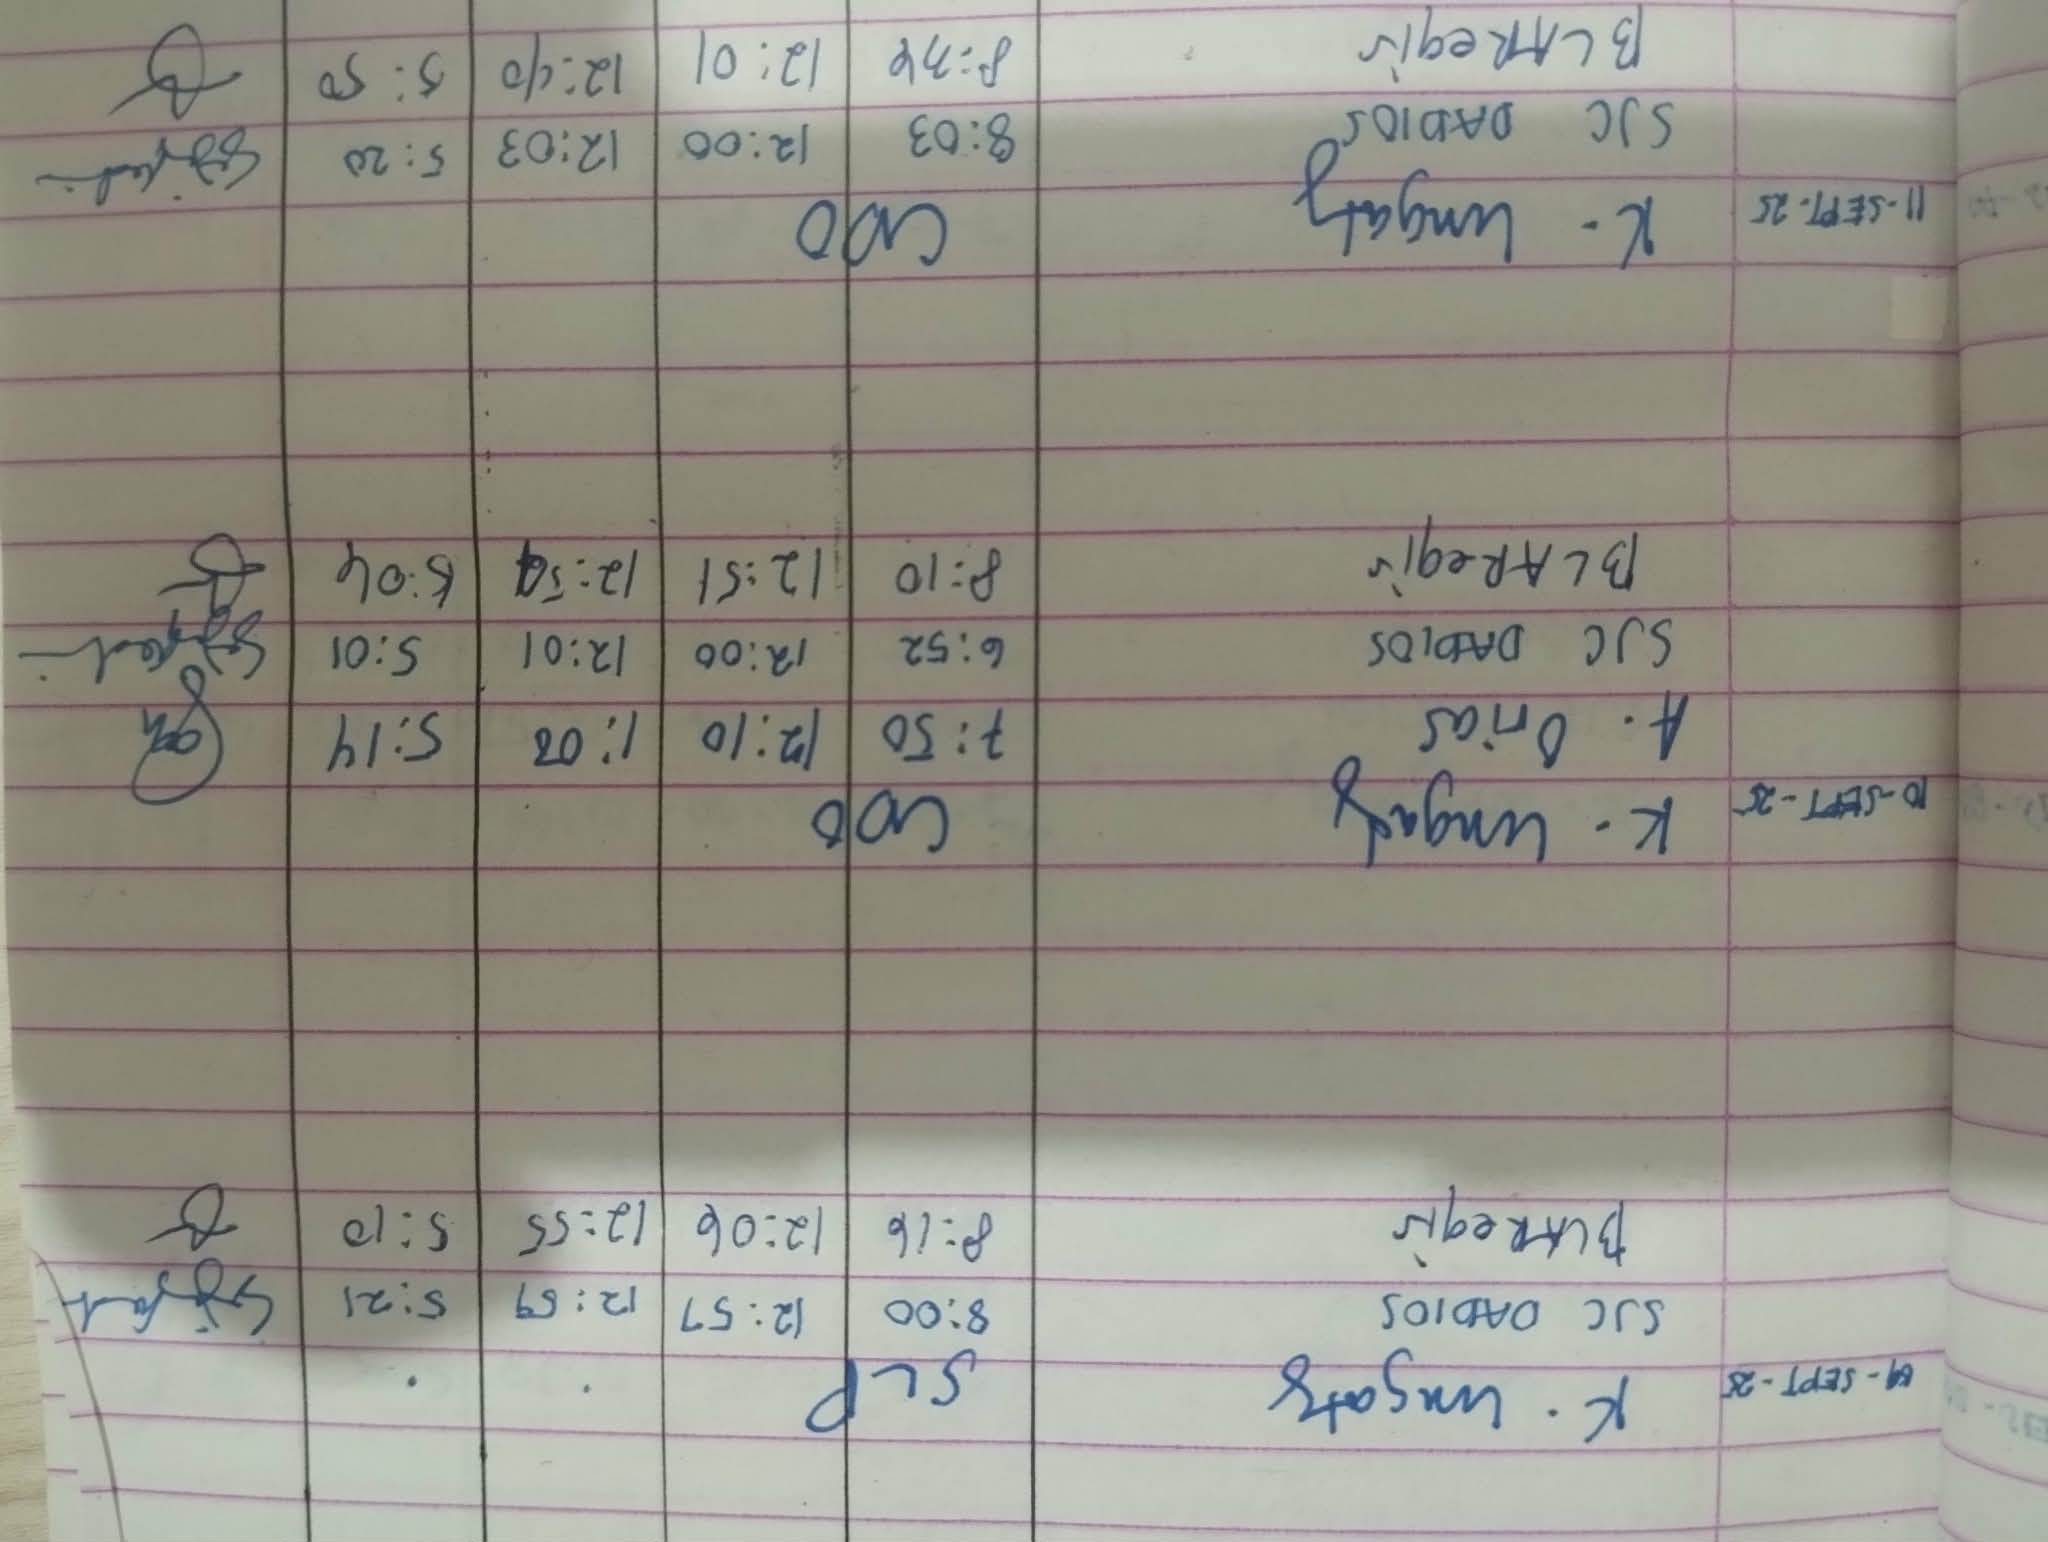 09-SEPT-25 K. Ungab SLP
SJC DADIOS 8:00 12:57 12:59 5:21
BLARegis 8:16 12:06 12:55 5:10
10-SEPT-25 K. Ungab CDO
A. Orias 7:50 12:10 1:08 5:14
SJC DADIOS 6:52 12:00 12:01 5:01
BLARegis 8:10 12:51 12:54 5:04
11-SEPT-25 K. Ungab CDO
SJC DADIOS 8:03 12:00 12:03 5:20
BLARegis 8:34 12:01 12:40 5:50